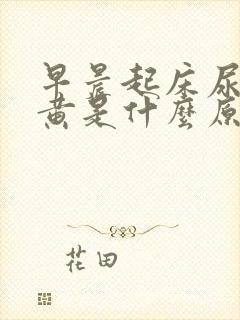 早晨起床尿
黄是什麼原
花田